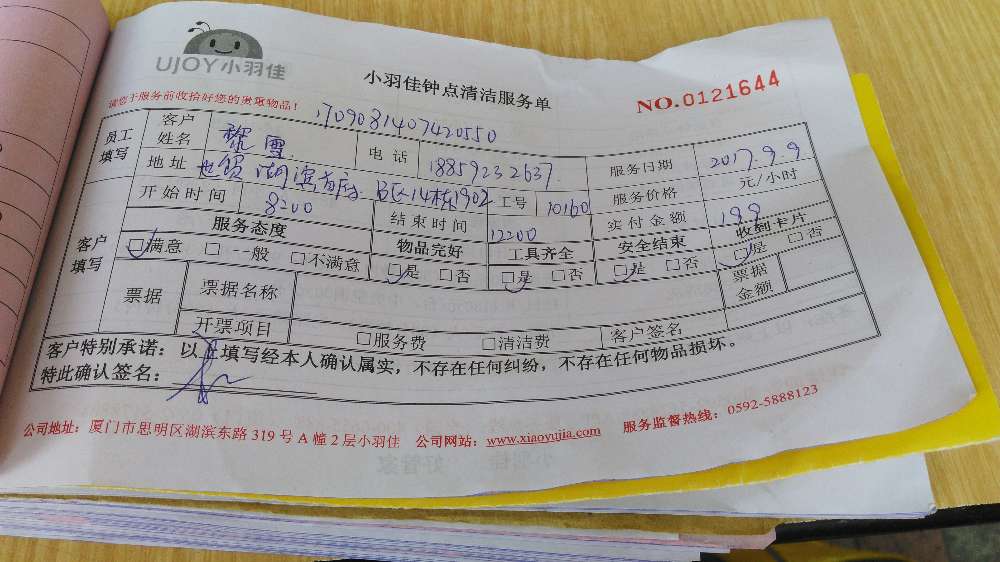 UJOY小羽佳
小羽佳钟点清洁服务单
NO.0121644
请您于服务前收拾好您的贵重物品!
1709081407420550
员工填写 客户姓名 黎雪 电话 18859232637 服务日期 2017.9.9
地址 世贸湖滨首府B区14栋1902 工号 10160 服务价格 元/小时
开始时间 8:00 结束时间 12:00 实付金额 199
客户填写 服务态度 物品完好 工具齐全 安全结束 收到卡片
□满意 □一般 □不满意 □是 □否 □是 □否 □是 □否 □是 □否
票据 票据名称 票据金额
开票项目 □服务费 □清洁费 客户签名
客户特别承诺:以上填写经本人确认属实,不存在任何纠纷,不存在任何物品损坏。
特此确认签名:
公司地址:厦门市思明区湖滨东路319号A幢2层小羽佳 公司网站:www.xiaoyujia.com 服务监督热线:0592-5888123